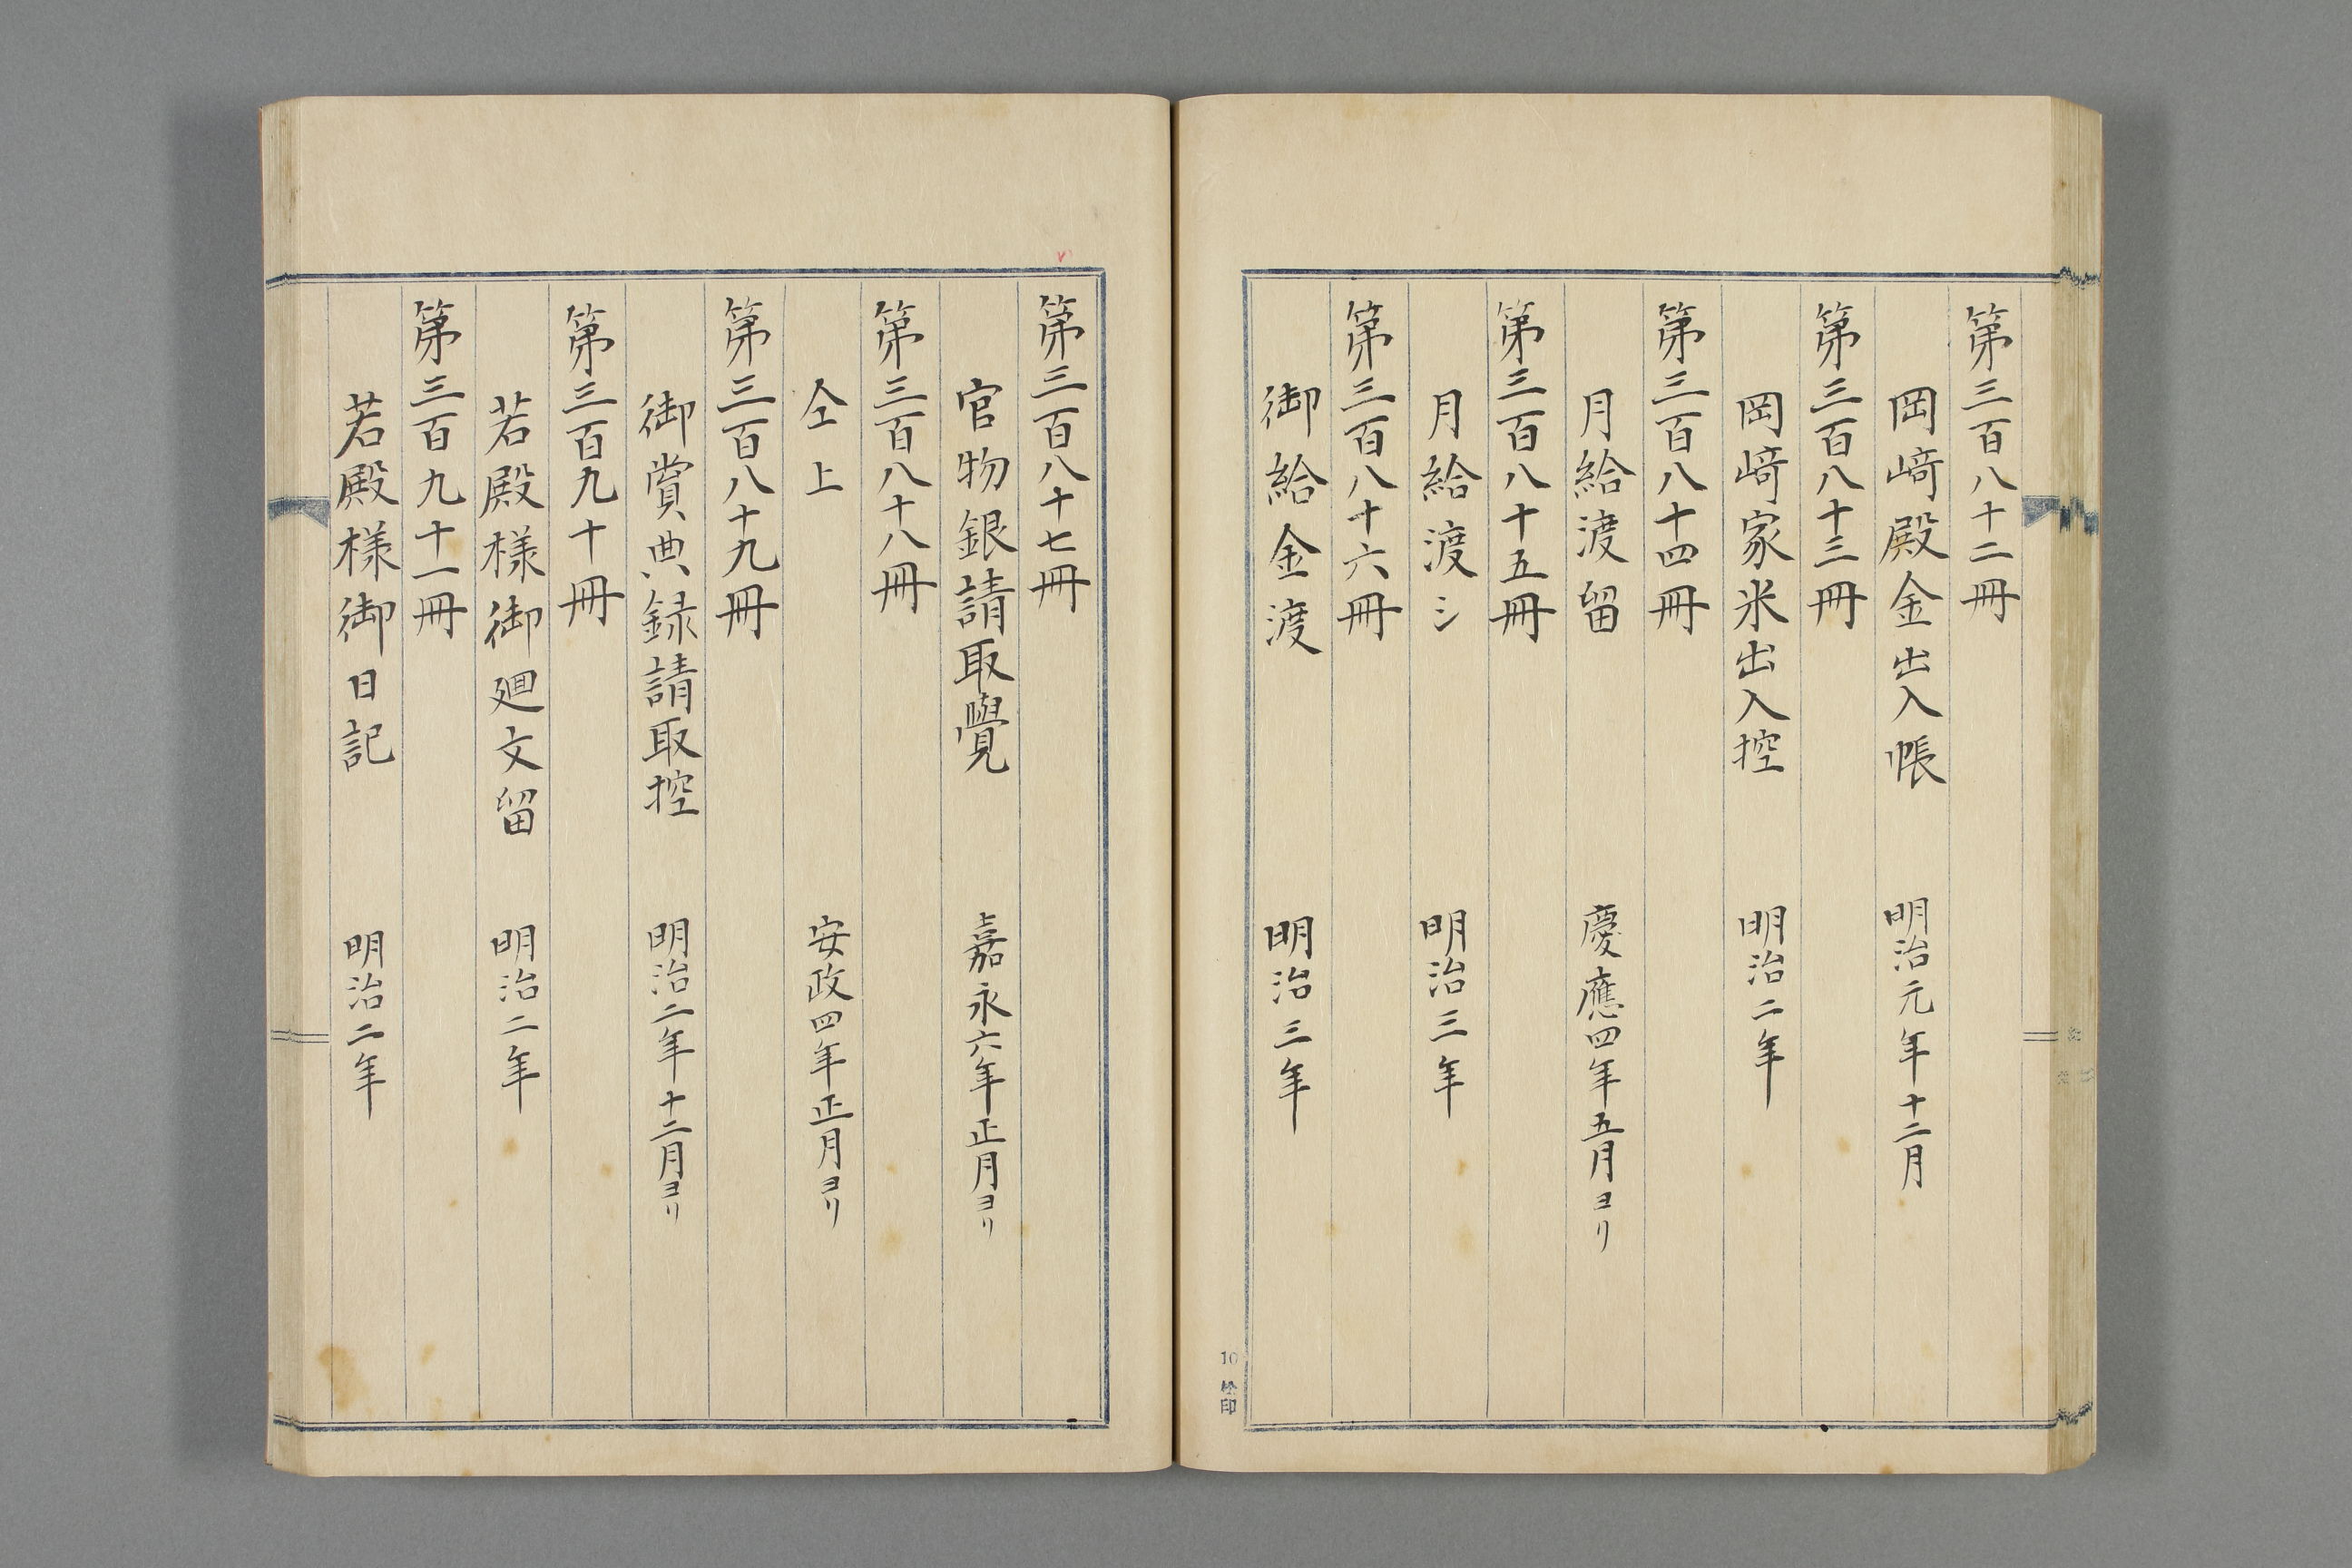 第三百八十二冊
岡﨑殿金出入帳 明治元年十二月
第三百八十三冊
岡﨑家米出入控 明治二年
第三百八十四冊
月給渡留 慶應四年五月ヨリ
第三百八十五冊
月給渡シ 明治三年
第三百八十六冊
御給金渡 明治三年
10 松印
第三百八十七冊
官物銀請取覺 嘉永六年正月ヨリ
第三百八十八冊
仝上 安政四年正月ヨリ
第三百八十九冊
御賞典録請取控 明治二年十二月ヨリ
第三百九十冊
若殿様御廻文留 明治二年
第三百九十一冊
若殿様御日記 明治二年